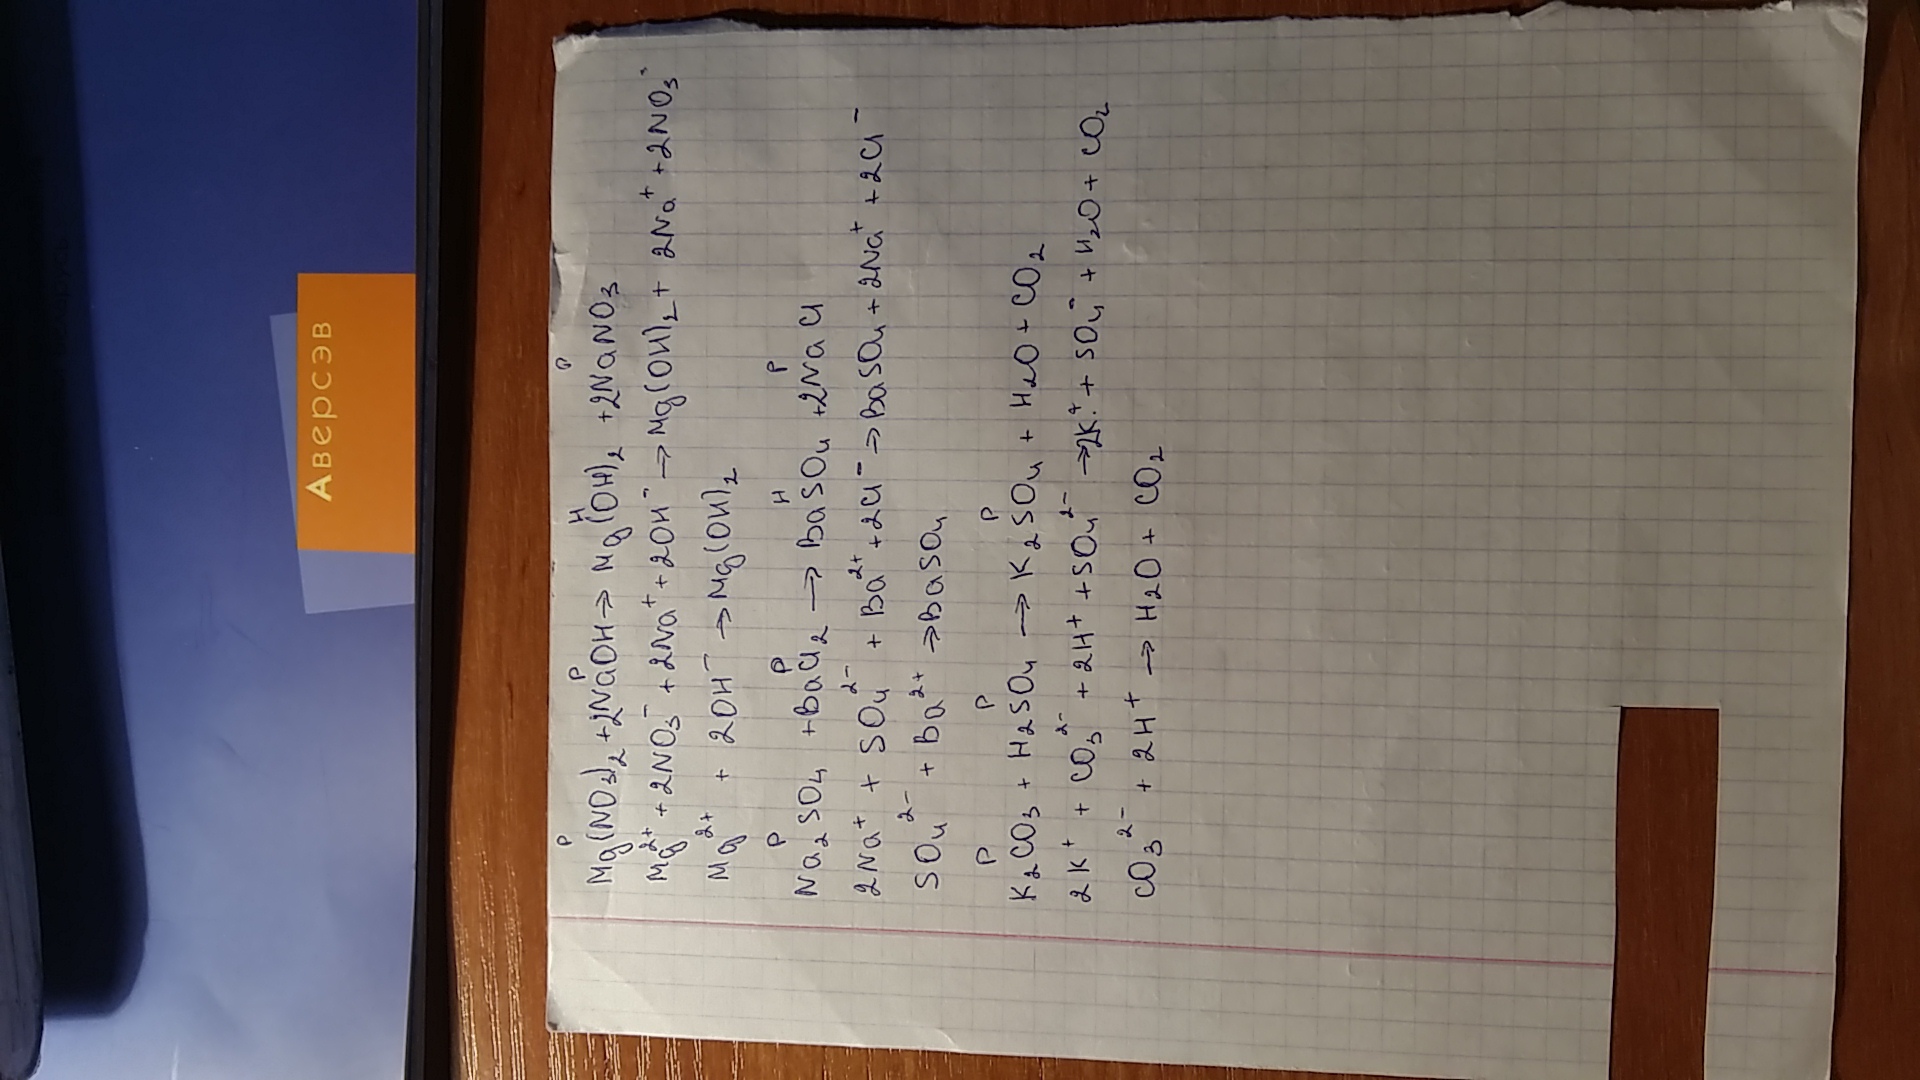 Аверсэв
Р Р Н Р
Mg(NO3)2 + 2NaOH → Mg(OH)2 + 2NaNO3
Mg2+ + 2NO3- + 2Na+ + 2OH- → Mg(OH)2 + 2Na+ + 2NO3-
Mg2+ + 2OH- → Mg(OH)2
Р Р Н Р
Na2SO4 + BaCl2 → BaSO4 + 2NaCl
2Na+ + SO42- + Ba2+ + 2Cl- → BaSO4 + 2Na+ + 2Cl-
SO42- + Ba2+ → BaSO4
Р Р Р
K2CO3 + H2SO4 → K2SO4 + H2O + CO2
2K+ + CO32- + 2H+ + SO42- → 2K+ + SO4- + H2O + CO2
CO32- + 2H+ → H2O + CO2